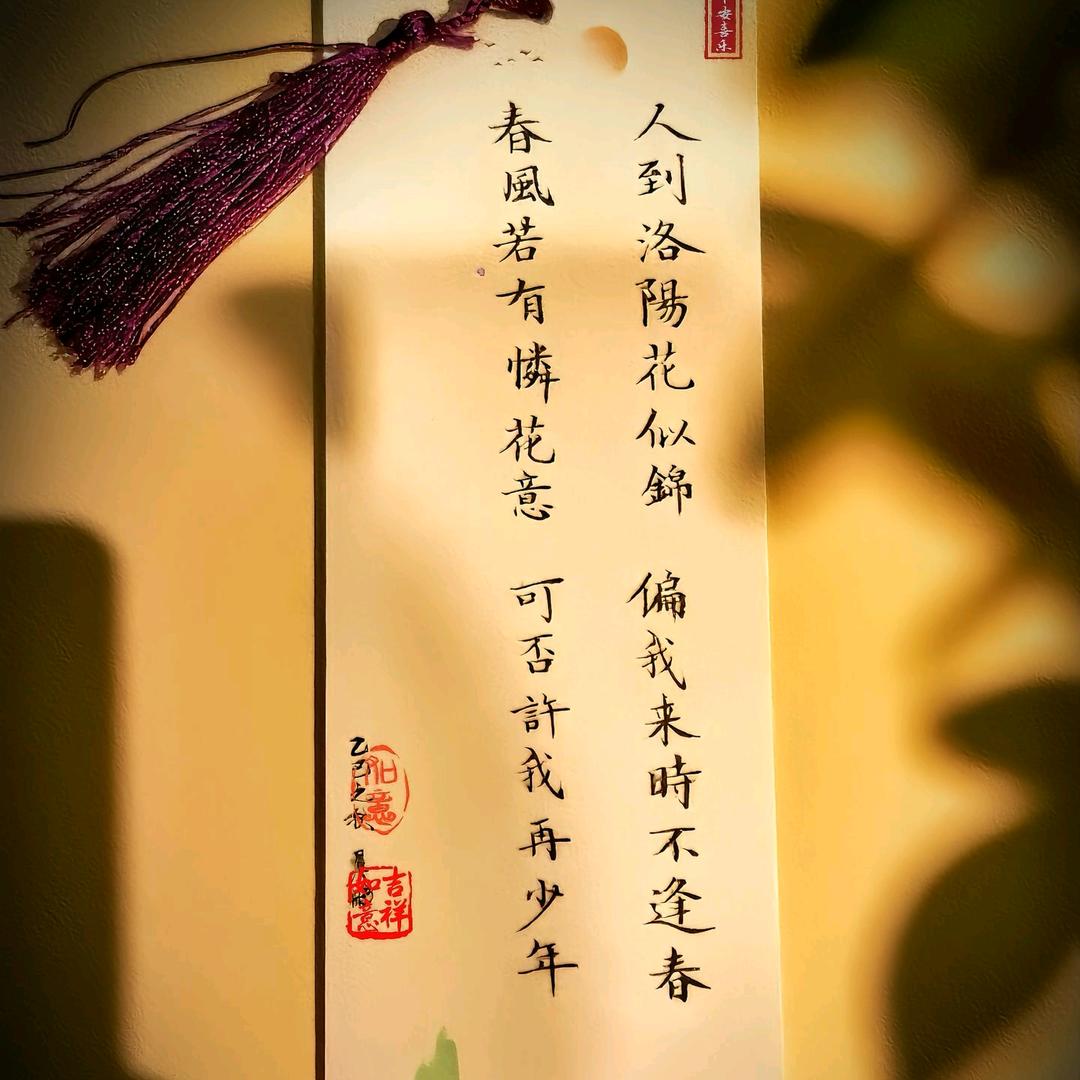 安喜乐
人到洛陽花似錦 偏我来時不逢春
春風若有憐花意 可否許我再少年
乙巳之秋
如意
吉祥如意